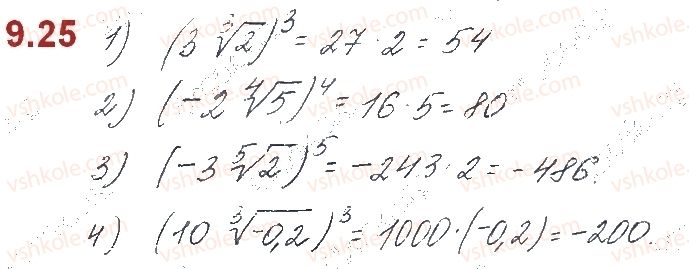 9.25 1) (3∛2)³ = 27 · 2 = 54
2) (-2∜5)⁴ = 16 · 5 = 80
3) (-3⁵√2)⁵ = -243 · 2 = -486.
4) (10∛-0,2)³ = 1000 · (-0,2) = -200.
vshkole.com